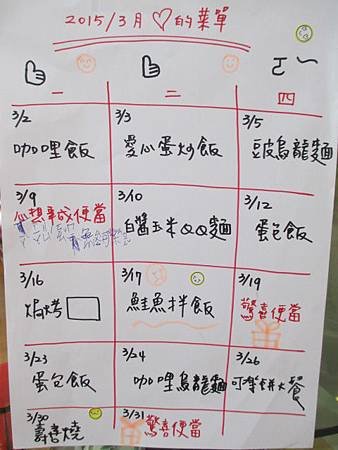 2015/3月♡的菜單
一 二 四
3/2 3/3 3/5
咖哩飯 愛心蛋炒飯 豆皮烏龍麵
3/9 3/10 3/12
心想事成便當 白醬玉米QQ麵 蛋包飯
3/16 3/17 3/19
焗烤 鮭魚拌飯 驚喜便當
3/23 3/24 3/26
蛋包飯 咖哩烏龍麵 可樂餅大餐
3/30 3/31
壽喜燒 驚喜便當